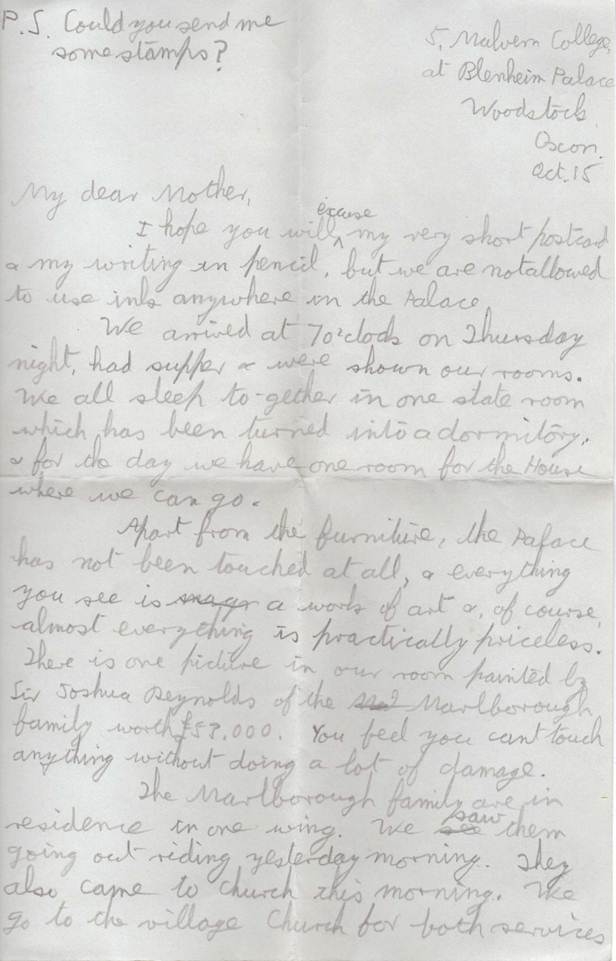 P.S. Could you send me
some stamps?
5, Malvern College,
at Blenheim Palace
Woodstock
Oxon.
Oct. 15
My dear Mother,
I hope you will excuse my very short postcard
& my writing in pencil, but we are not allowed
to use ink anywhere in the Palace
We arrived at 7 o'clock on Thursday
night, had supper & were shown our rooms.
We all sleep to-gether in one state room
which has been turned into a dormitory,
& for the day we have one room for the House
where we can go.
Apart from the furniture, the Palace
has not been touched at all, & everything
you see is a work of art &, of course,
almost everything is practically priceless.
There is one picture in our room painted by
Sir Joshua Reynolds of the Marlborough
family worth £57,000. You feel you cant touch
anything without doing a lot of damage.
The Marlborough family are in
residence in one wing. We see saw them
going out riding yesterday morning. They
also came to Church this morning. We
go to the village Church for both services